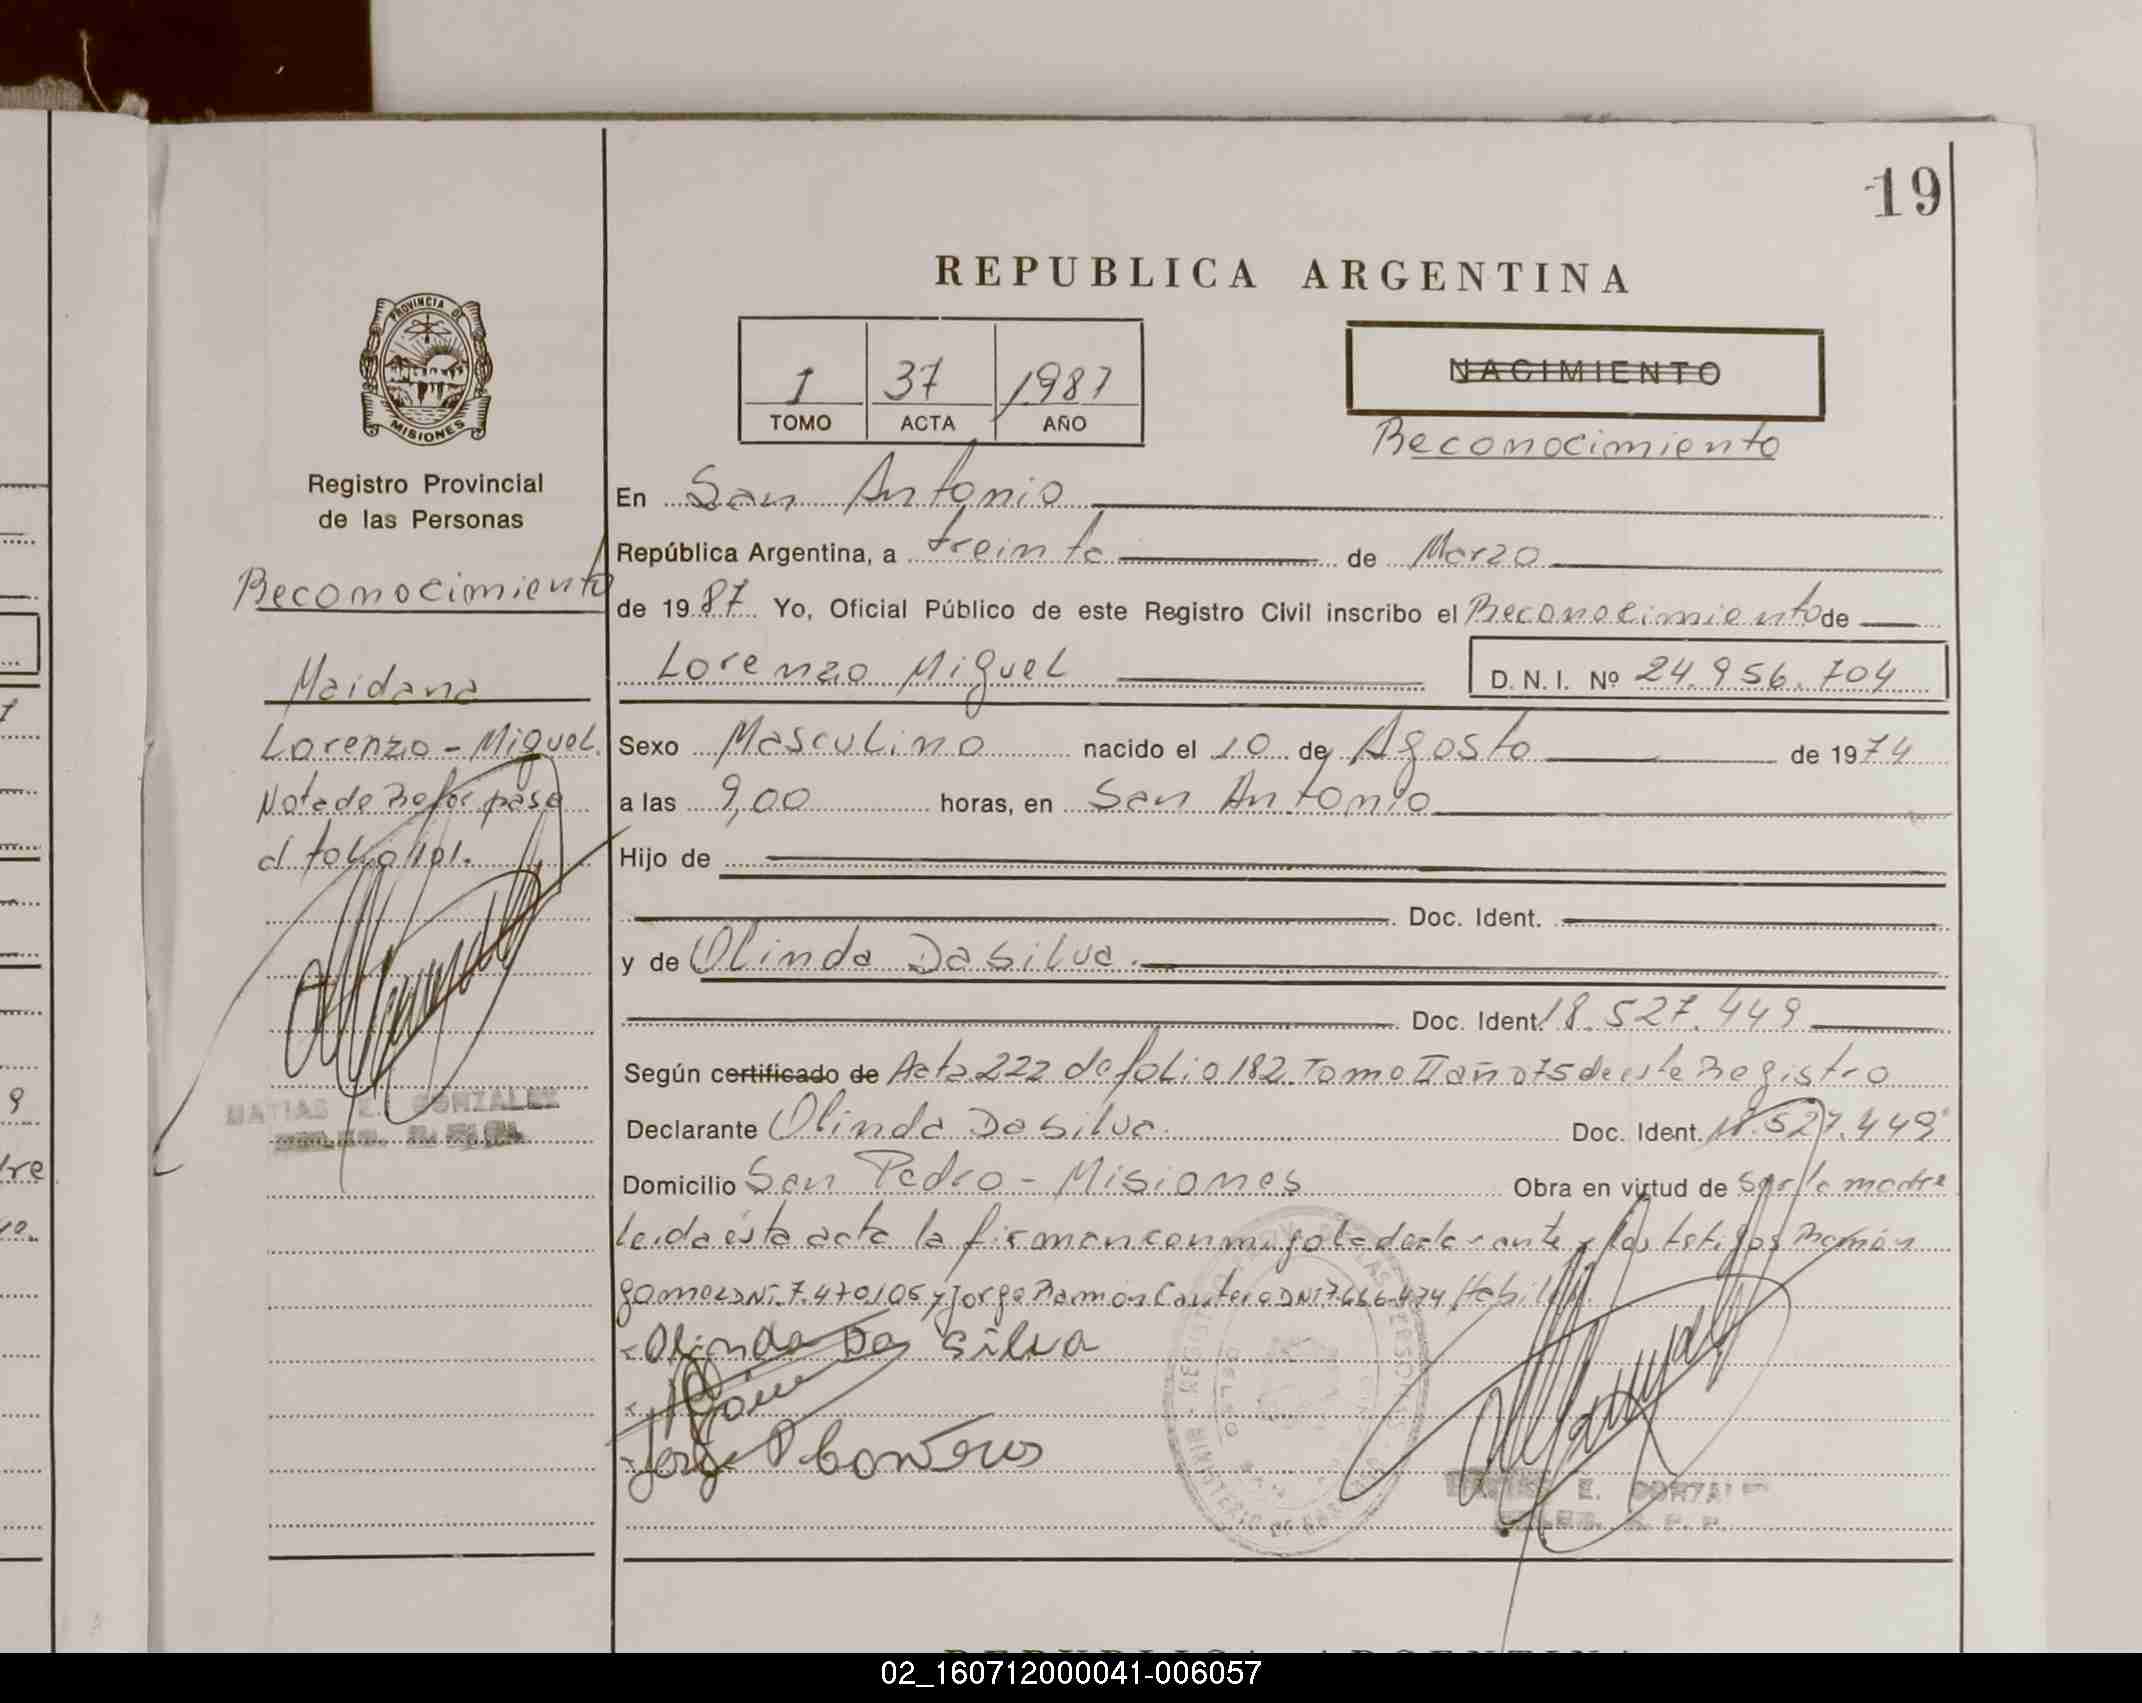 19
REPUBLICA ARGENTINA
1 37 1987
TOMO ACTA AÑO
NACIMIENTO
Reconocimiento
PROVINCIA DE
MISIONES
Registro Provincial
de las Personas
Reconocimiento
Maidana
Lorenzo - Miguel.
Nota de Refer pasa
al folio 101.
MATIAS E. GONZALEZ
En San Antonio
República Argentina, a treinta de Marzo
de 1987. Yo, Oficial Público de este Registro Civil inscribo el Reconocimiento de
Lorenzo Miguel D. N. I. Nº 24.956.704
Sexo Masculino nacido el 10 de Agosto de 1974
a las 9,00 horas, en San Antonio
Hijo de
Doc. Ident.
y de Olinda Dasilva.
Doc. Ident. 18.527.449
Según certificado de Acta 222 del folio 182. Tomo II año 75 de este Registro
Declarante Olinda Dasilva. Doc. Ident. 18.527.449
Domicilio San Pedro - Misiones Obra en virtud de ser la madre
leida esta acta la firman conmigo la declarante y los testigos Ramón
Gomez DNi. 7.470.105 y Jorge Ramon DNi 7.666.474 Habiles
Olinda Da Silva
Jorge R
MATIAS E. GONZALEZ
REPUBLICA ARGENTINA
02_160712000041-006057